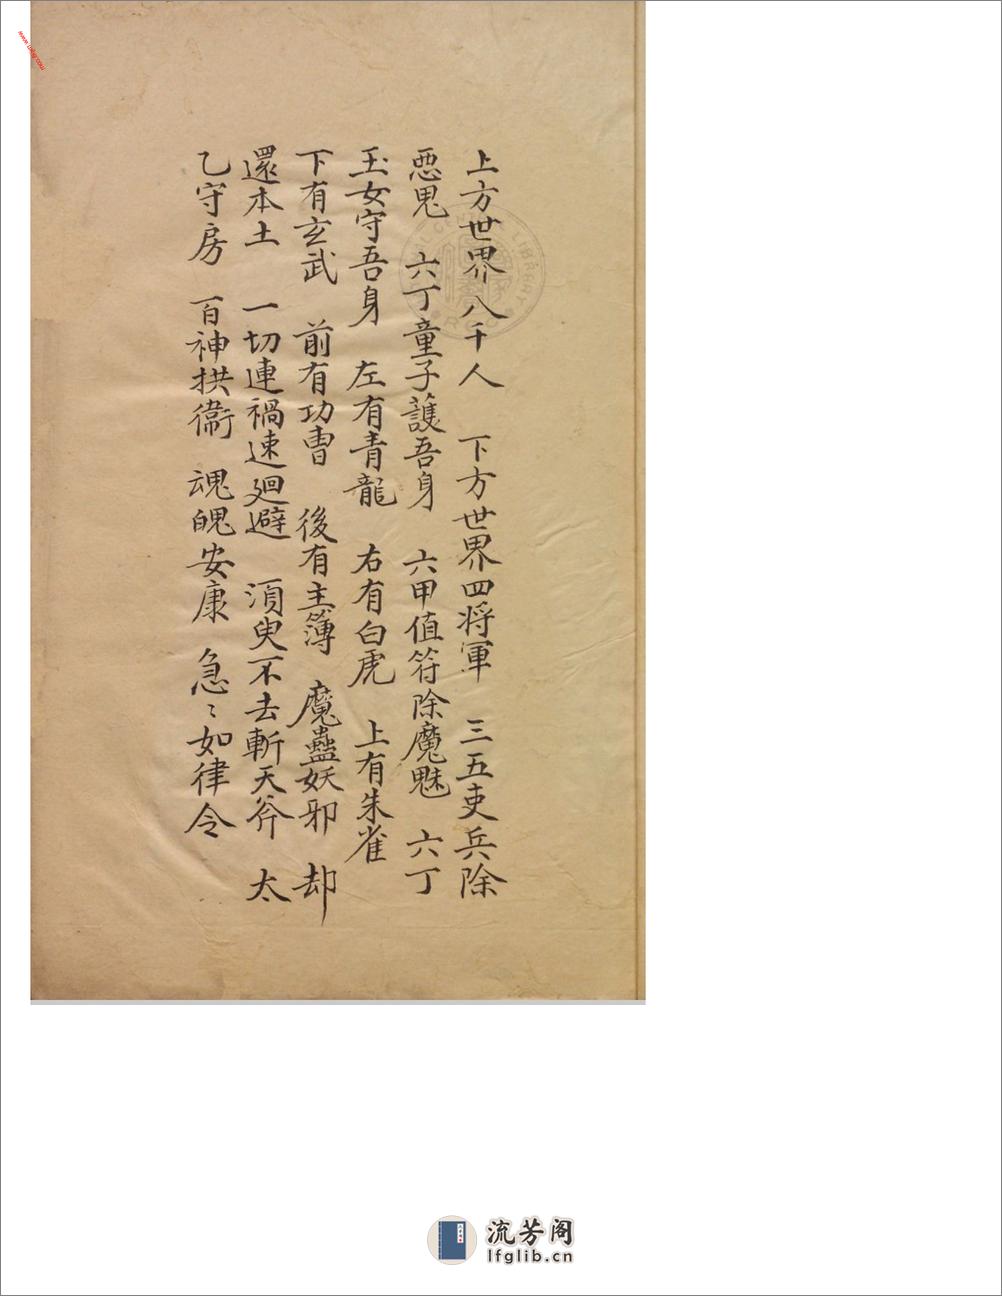 上方世界八千人　下方世界四将軍　三五吏兵除
惡鬼　六丁童子護吾身　六甲值符除魔魅　六丁
玉女守吾身　左有青龍　右有白虎　上有朱雀
下有玄武　前有功曹　後有主簿　魔蠱妖邪　却
還本土　一切連禍速廻避　須臾不去斬天斧　太
乙守房　百神拱衞　魂魄安康　急〻如律令
流芳阁
lfglib.cn